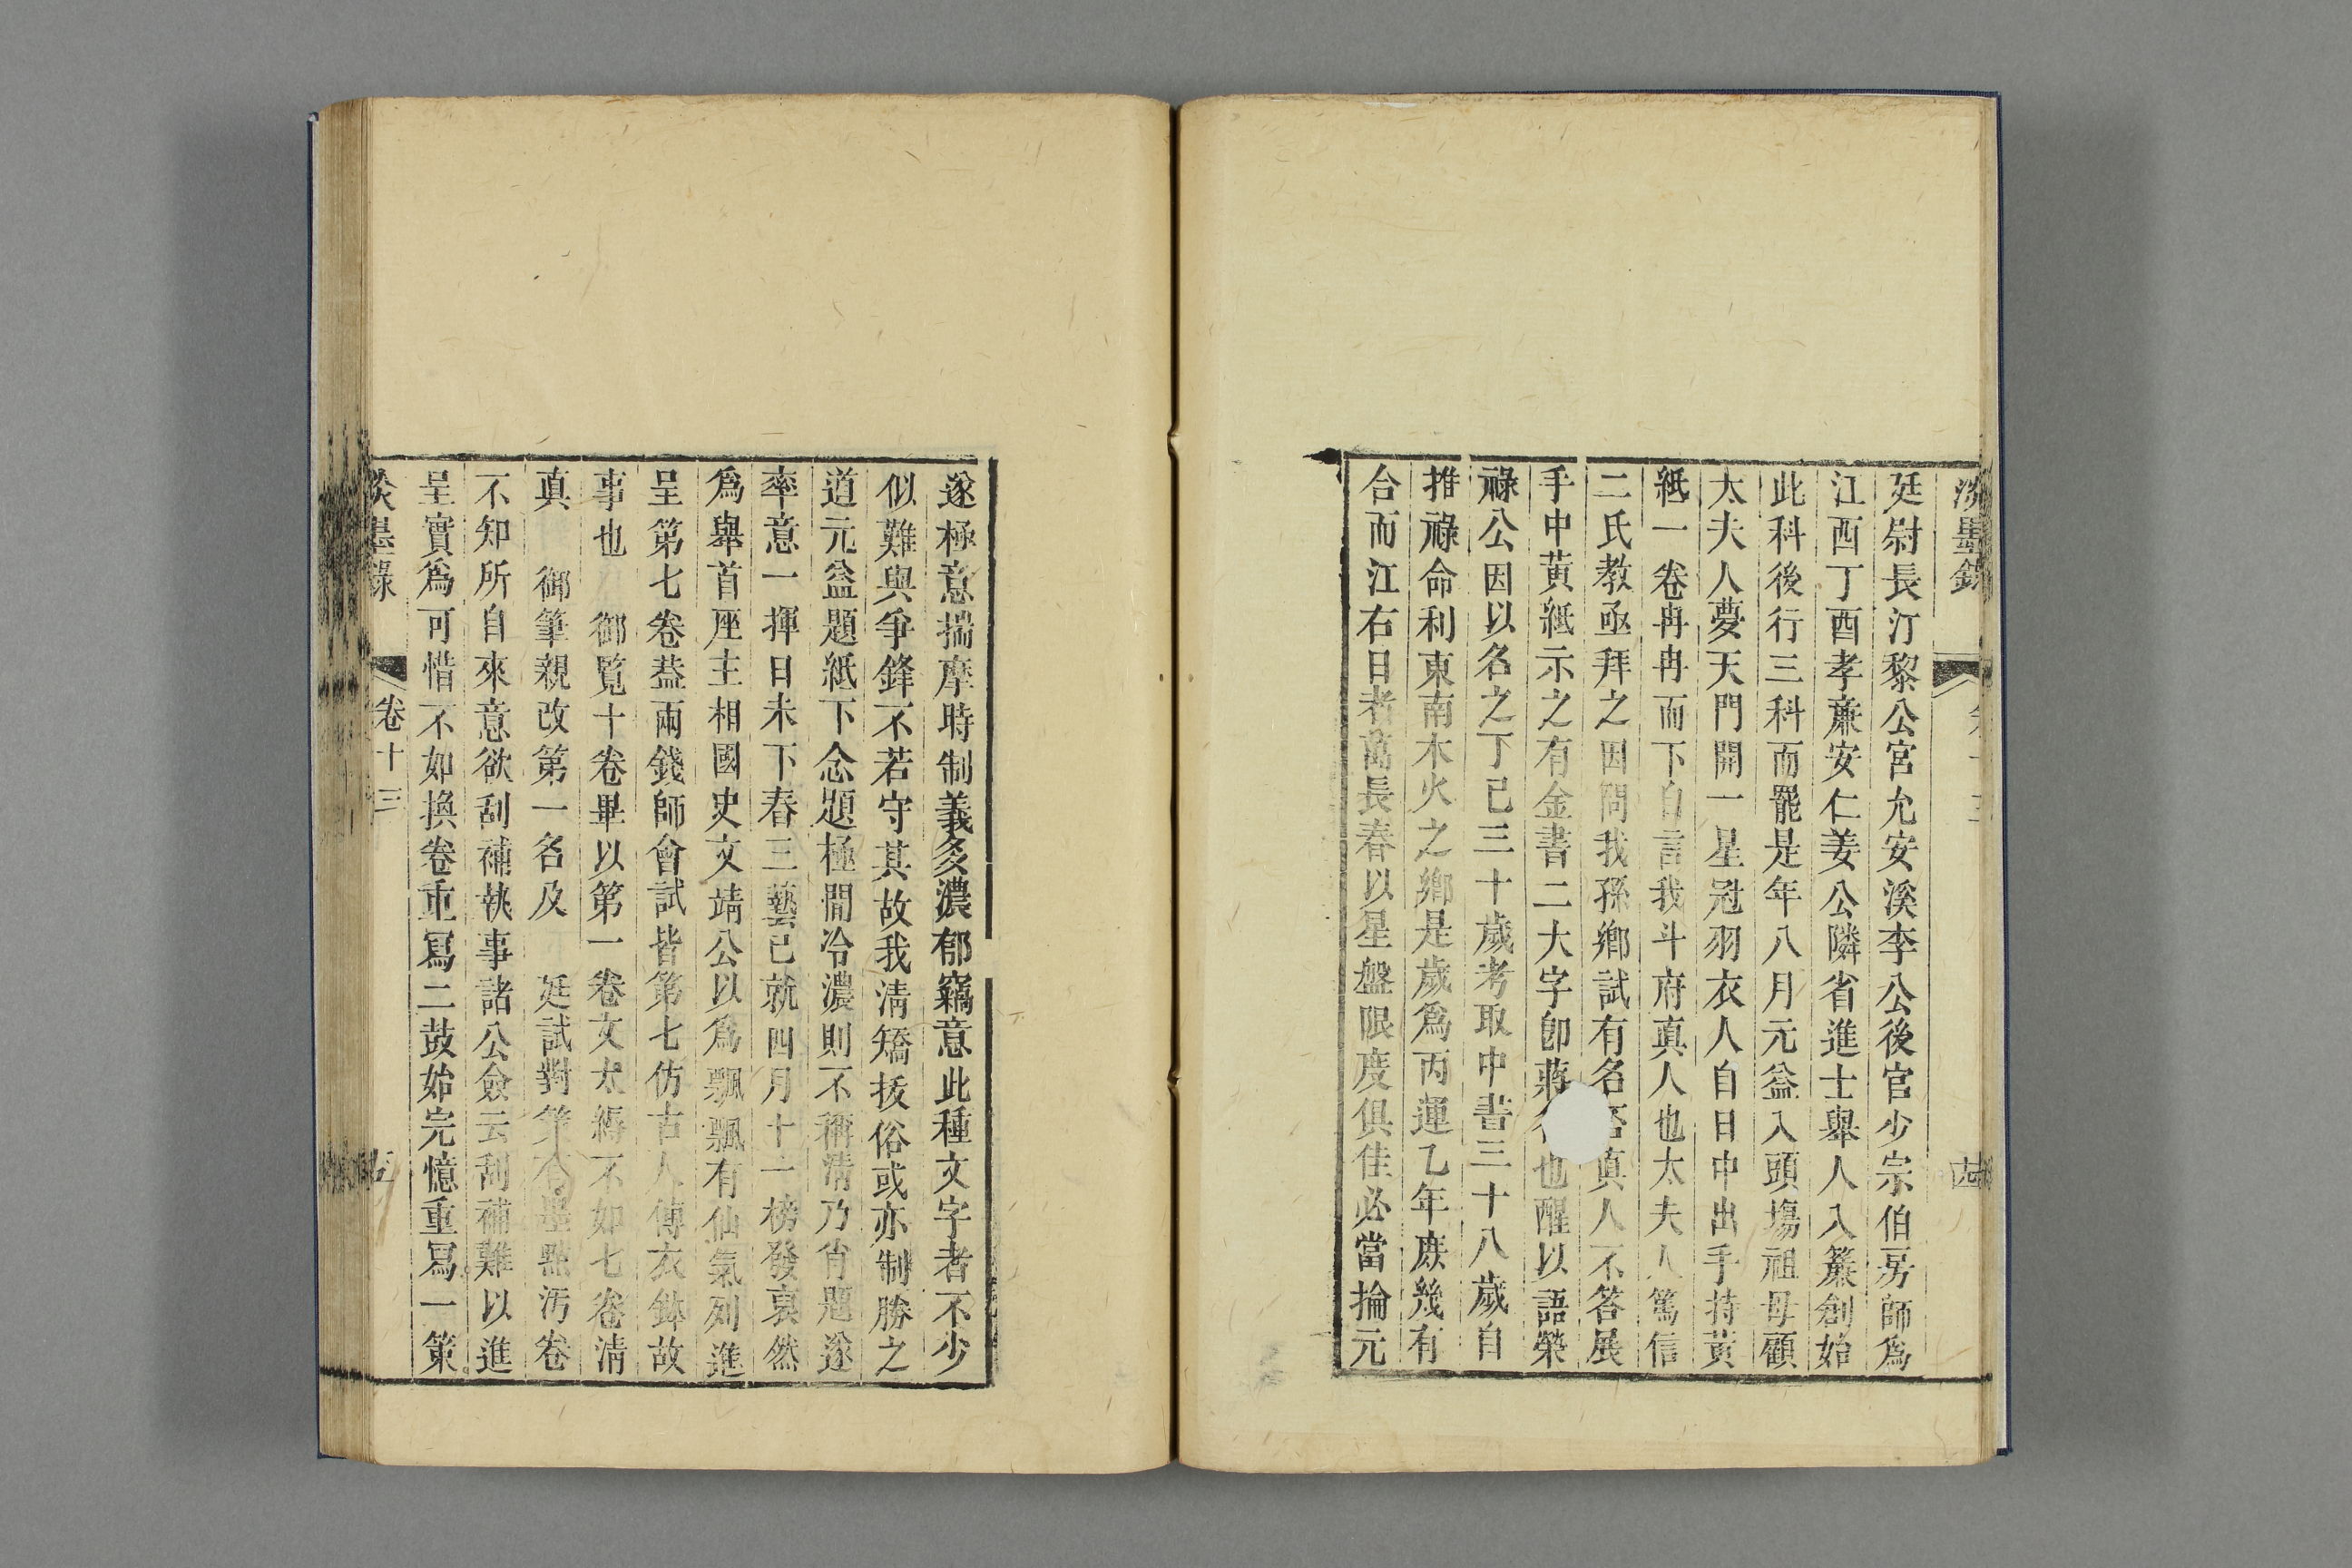 淡墨錄
廷尉長汀黎公宮允安溪李公後官少宗伯房師爲
江西丁酉孝廉安仁姜公隣省進士舉人入簾創始
此科後行三科而罷是年八月元益入頭塲祖母顧
太夫人夢天門開一星冠羽衣人自日中出手持黃
紙一卷冉冉而下自言我斗府真人也太夫人篤信
二氏教亟拜之因問我孫鄉試有名否真人不答展
手中黃紙示之有金書二大字卽蔣 也醒以語榮
祿公因以名之丁巳三十歲考取中書三十八歲自
推祿命利東南木火之鄉是歲爲丙運乙年庶幾有
合而江右日者萬長春以星盤限度俱佳必當掄元
遂極意揣摩時制義多濃郁竊意此種文字者不少
似難與爭鋒不若守其故我清矯拔俗或亦制勝之
道元益題紙下念題極閒冷濃則不稱清乃肖題遂
率意一揮日未下舂三藝已就四月十一榜發裒然
爲舉首座主相國史文靖公以爲飄飄有仙氣列進
呈第七卷葢兩錢師會試皆第七仿古人傳衣鉢故
事也 御覧十卷畢以第一卷文太縟不如七卷清
真 御筆親改第一名及 廷試對策 墨㸃汚卷
不知所自來意欲刮補執事諸公僉云刮補難以進
呈實爲可惜不如換卷重冩二鼓始完憶重冩一策
淡墨錄 卷十三